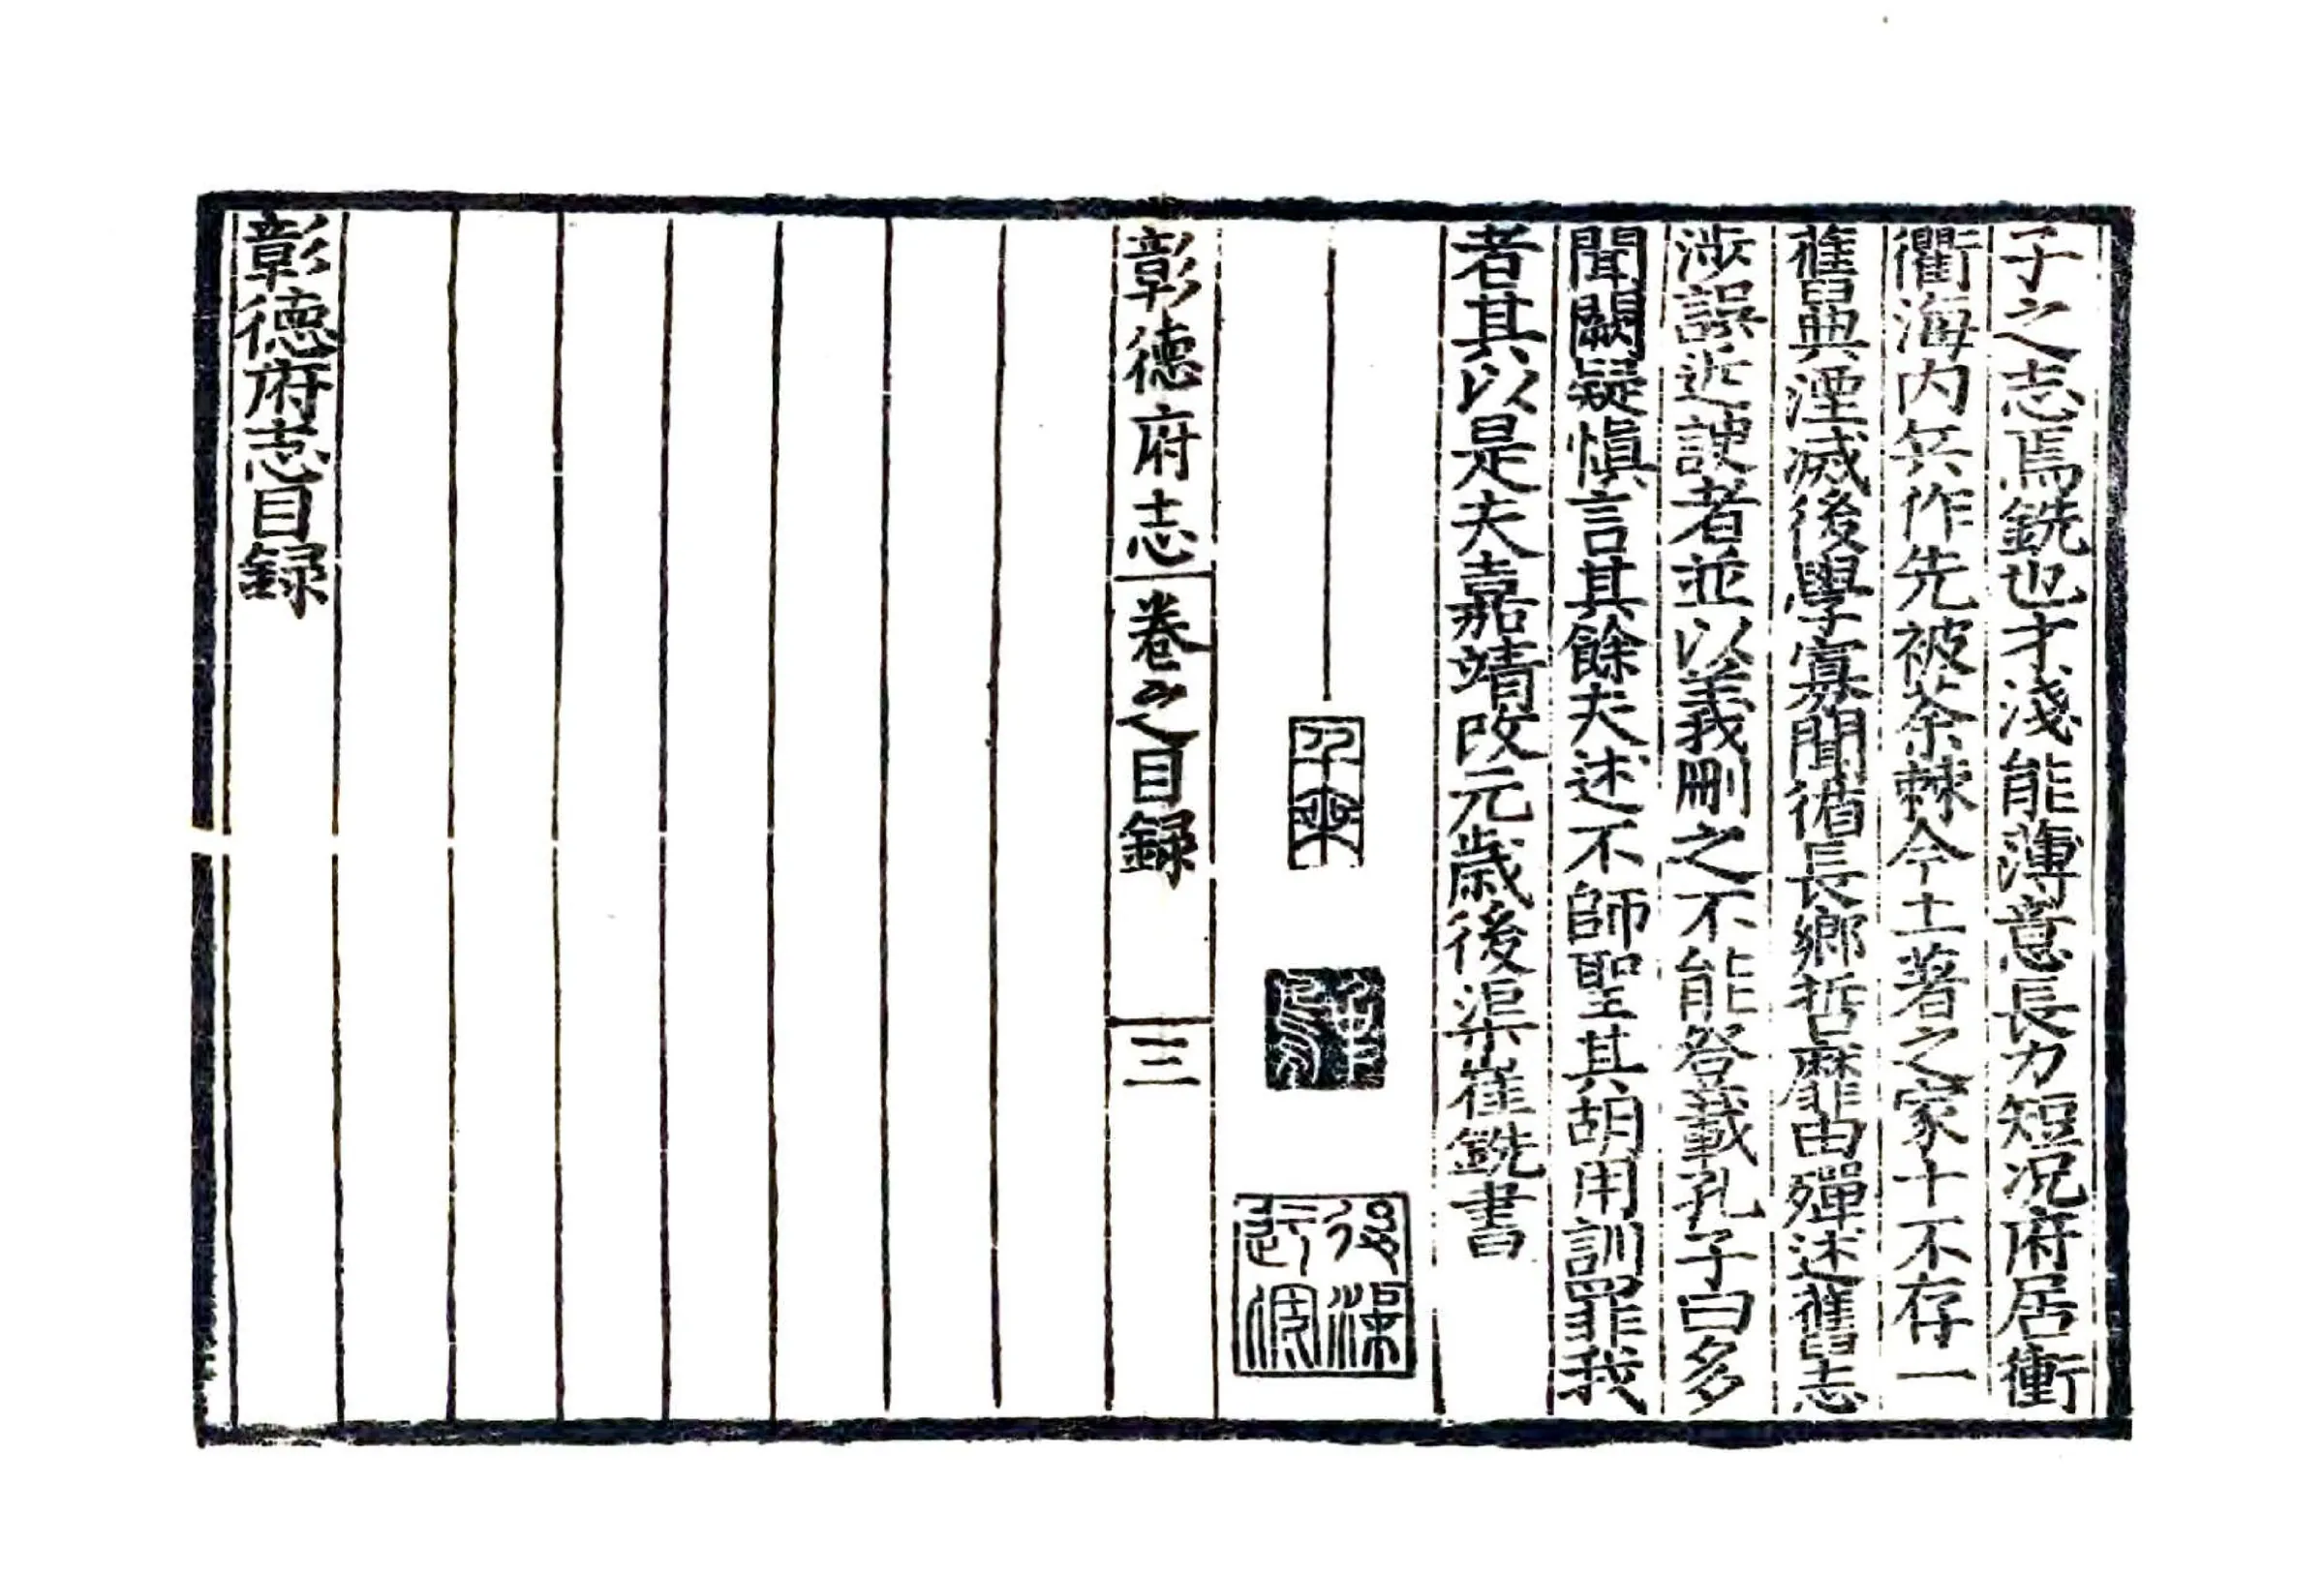 子之志焉銑也才淺能薄意長力短况府居衝
衢海内兵作先被荼棘今土著之家十不存一
舊典湮滅後學寡聞循長鄉哲靡由殫述舊志
涉誤近諛者並以義刪之不能咎載孔子曰多
聞闕疑慎言其餘夫述不師聖其胡用訓罪我
者其以是夫嘉靖改元歲後渠崔銑書
後渠
彰德府志 卷之目録 三
彰德府志目録